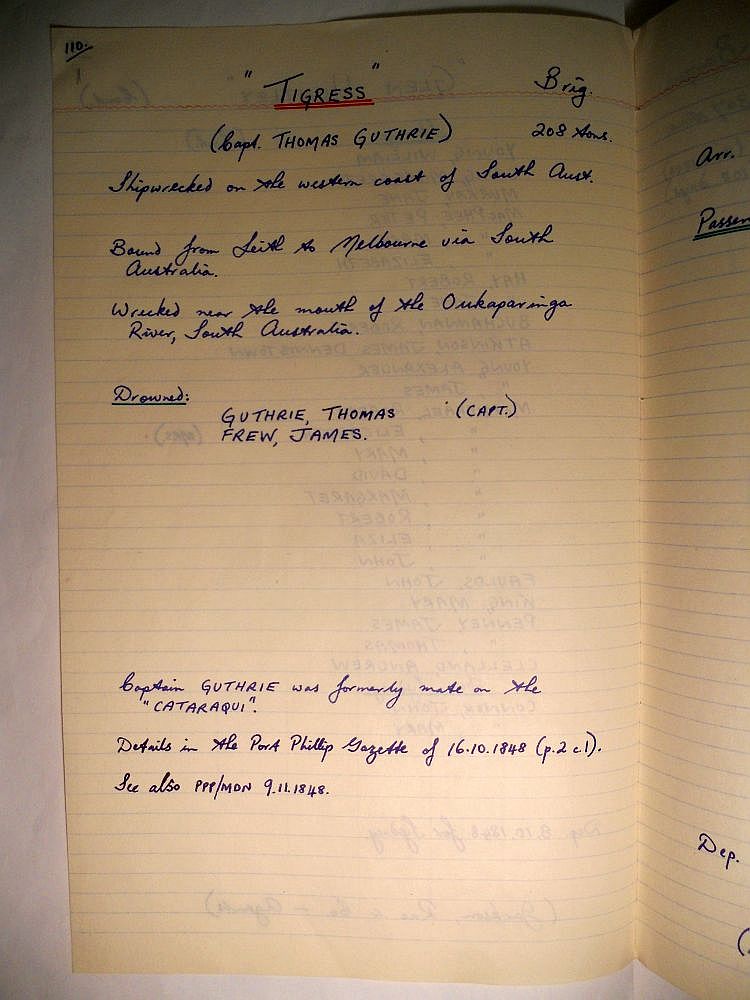 110.
"TIGRESS" Brig.
(Capt. THOMAS GUTHRIE) 208 tons.
Shipwrecked on the western coast of South Aust.
Bound from Leith to Melbourne via South
Australia.
Wrecked near the mouth of the Onkaparinga
River, South Australia.
Drowned:
GUTHRIE, THOMAS (CAPT.)
FREW, JAMES.
Captain GUTHRIE was formerly mate on the
"CATARAQUI".
Details in the Port Phillip Gazette of 16.10.1848 (p.2 c.1).
See also PPP/MDN 9.11.1848.
Arr.
Passen
Dep.